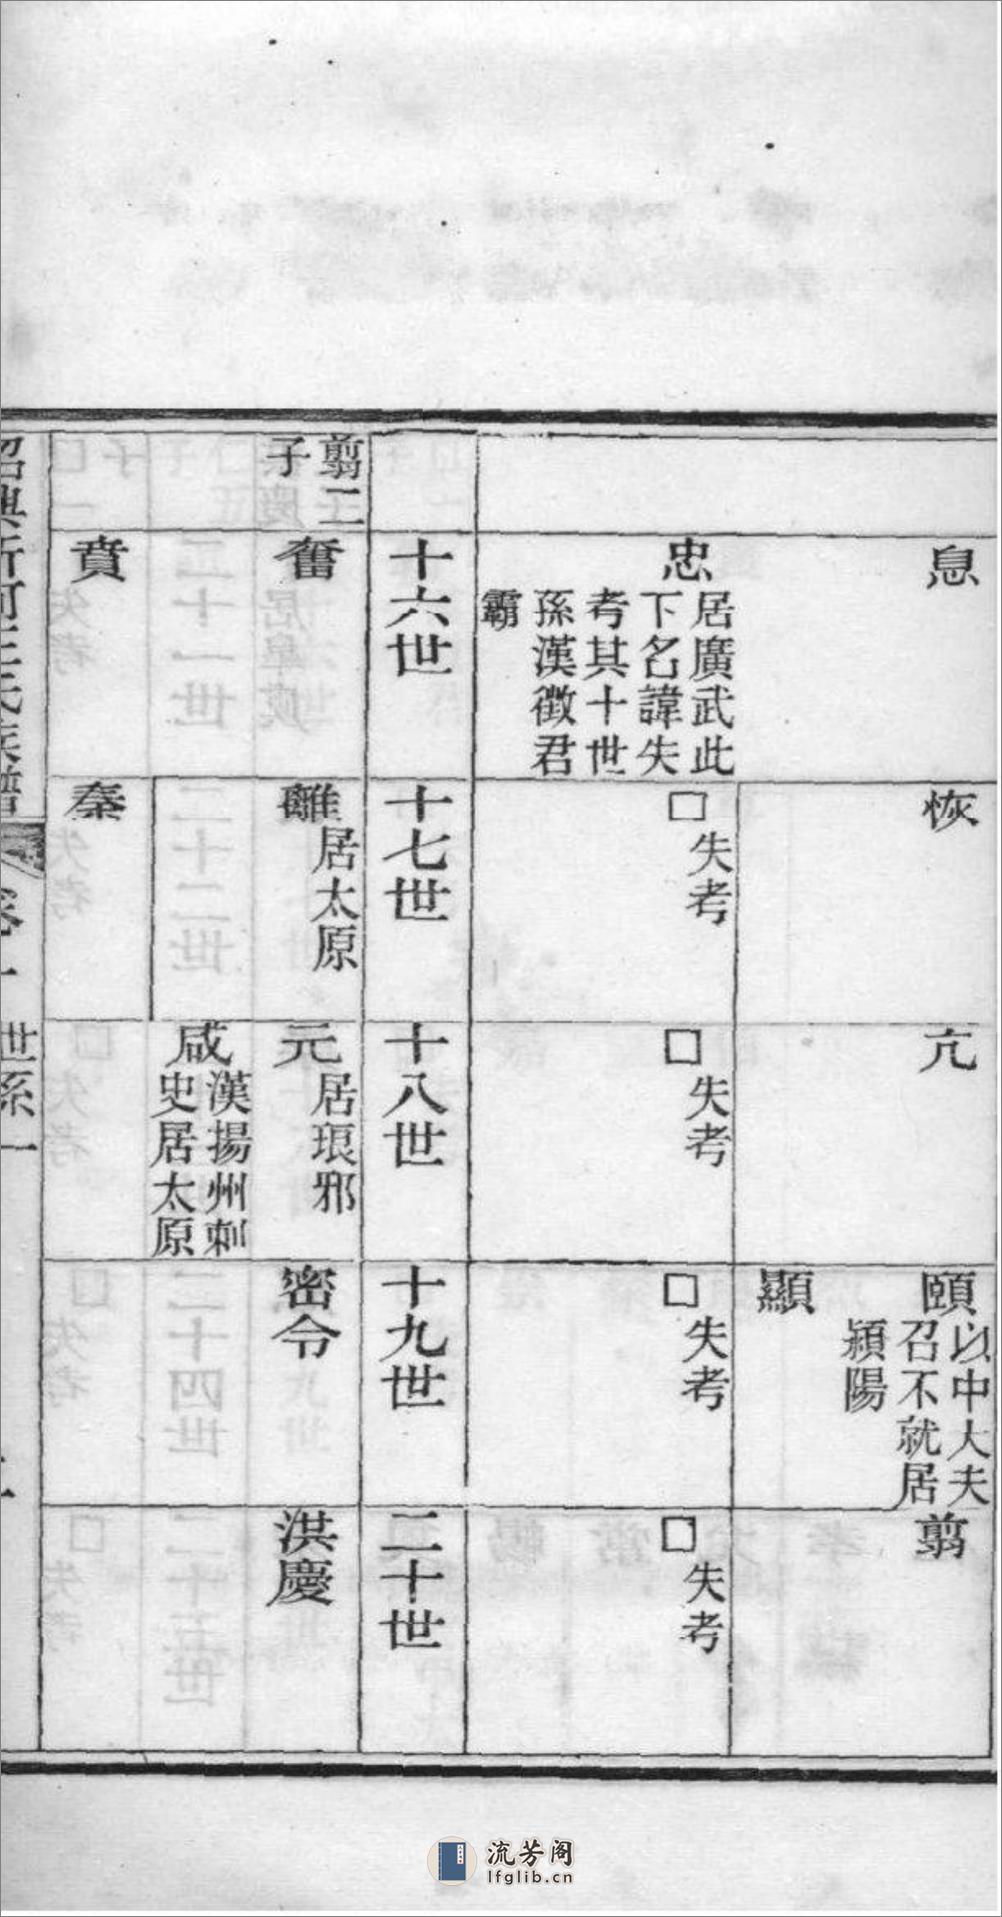 息
恢
亢
頤
以中大夫
召不就居
潁陽
顯
翦
忠
居廣武此
下名諱失
考其十世
孫漢徵君
霸
□
失考
□
失考
□
失考
□
失考
十六世
十七世
十八世
十九世
二十世
翦二
子
奮
離
居太原
元
居琅邪
咸
漢揚州刺
史居太原
密令
洪慶
賁
秦
紹興新河王氏族譜
卷一
世系一
流芳阁
lfglib.cn